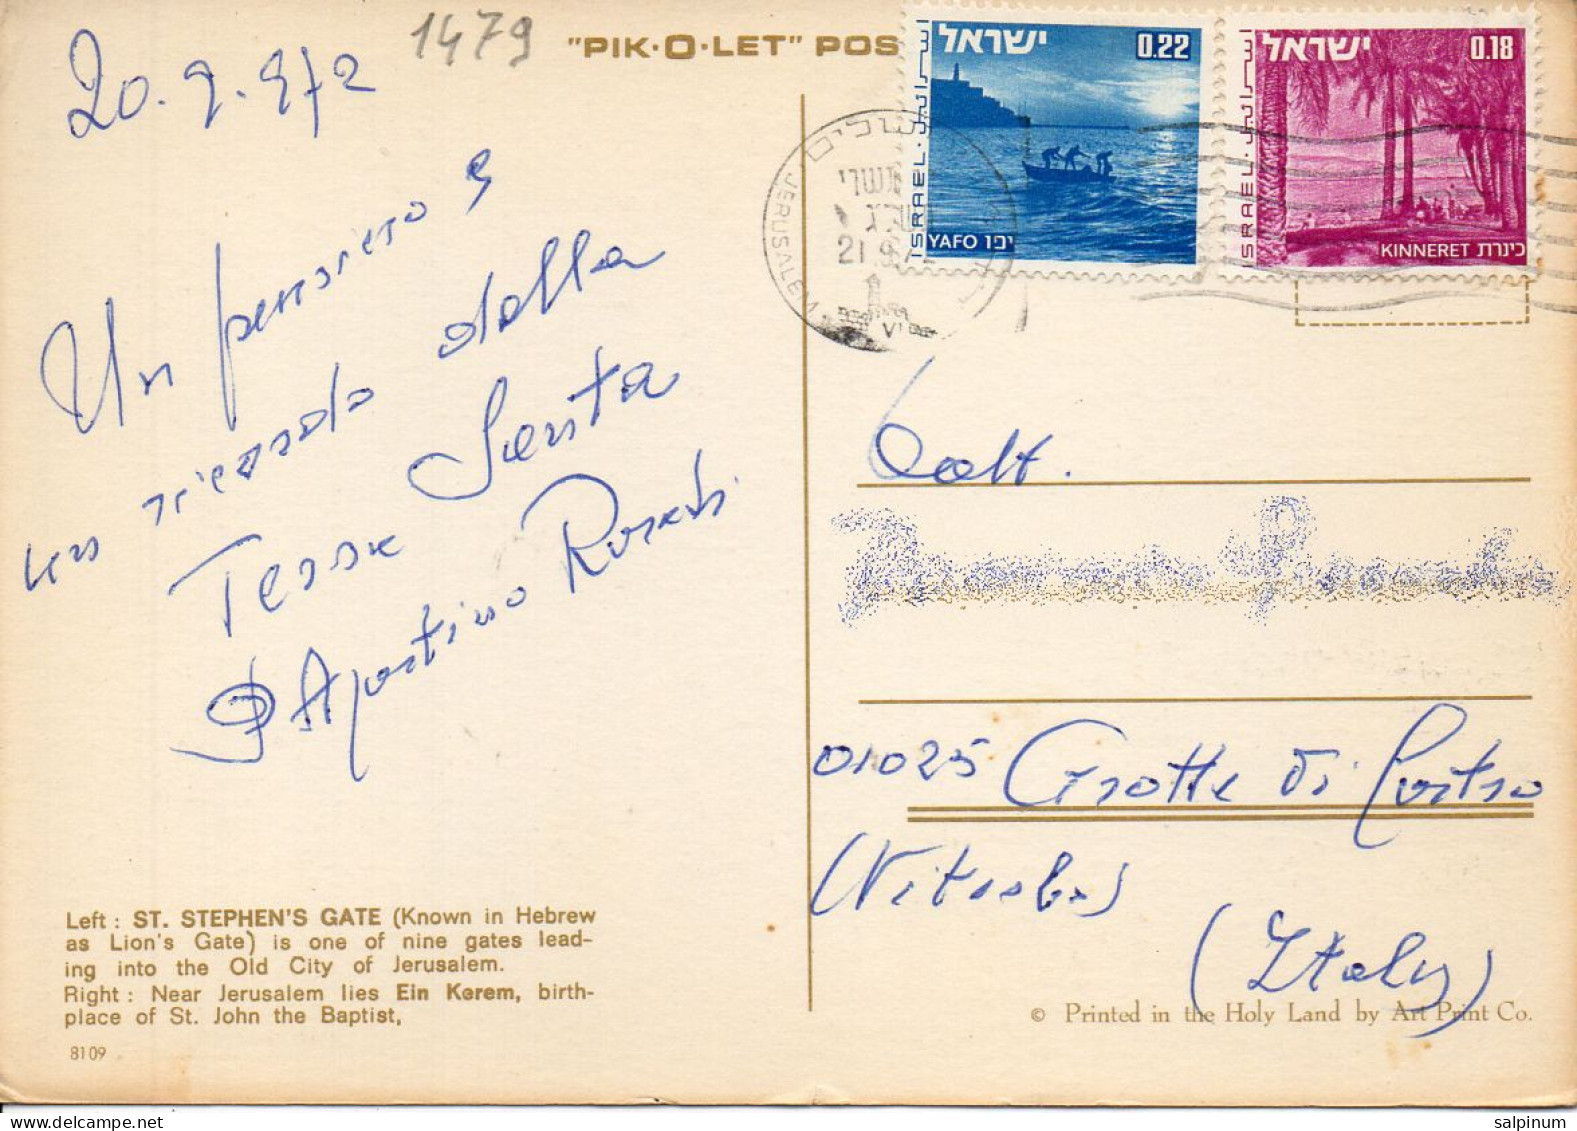 1479
"PIK·O·LET" POS
ישראל 0.22
ISRAEL
YAFO יפו
ישראל 0.18
ISRAEL
KINNERET כינרת
JERUSALEM
20.9.972
Un pensiero e
un ricordo della
Terra Santa
D'Agostino
Dott.
01025 Grotte di Castro
(Viterbo)
(Italy)
Left : ST. STEPHEN'S GATE (Known in Hebrew
as Lion's Gate) is one of nine gates lead-
ing into the Old City of Jerusalem.
Right : Near Jerusalem lies Ein Kerem, birth-
place of St. John the Baptist,
8109
© Printed in the Holy Land by Art Print Co.
salpinum